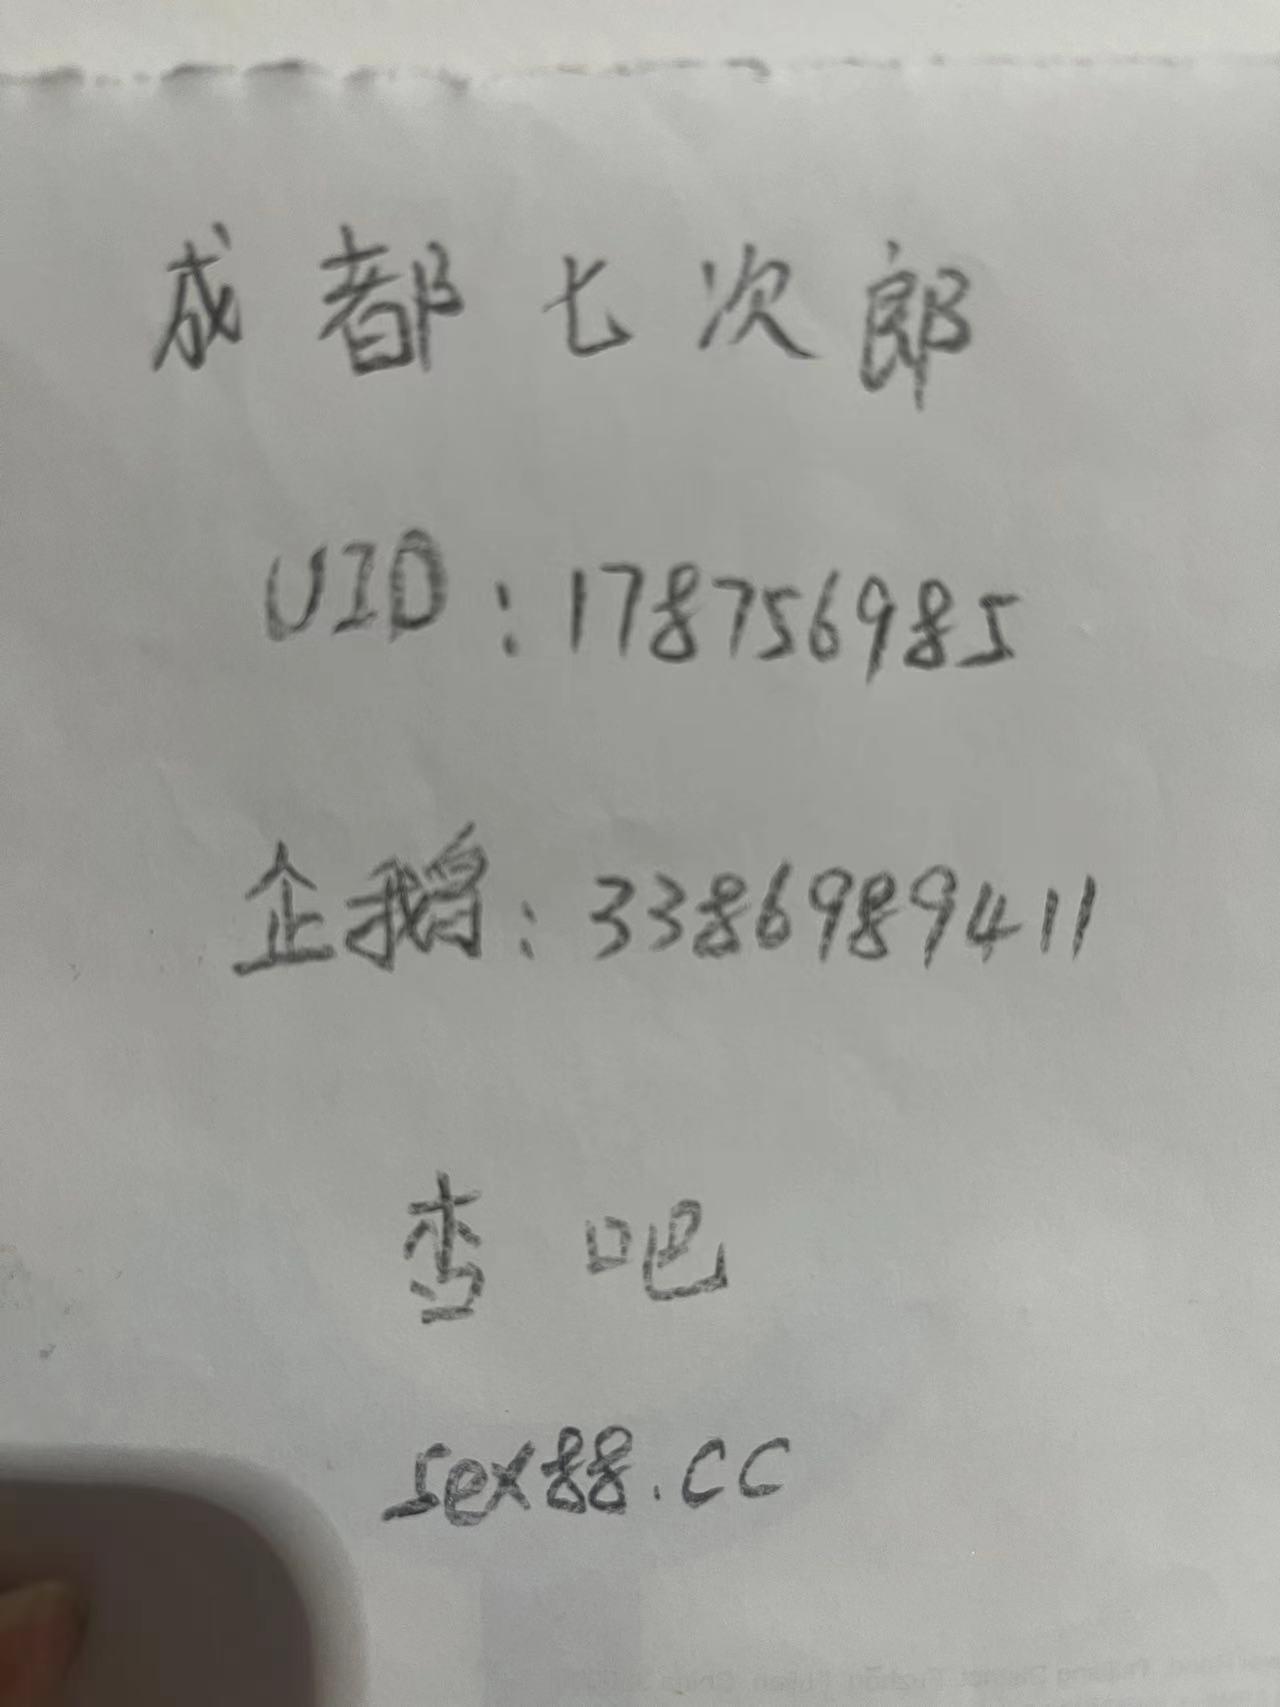 成都七次郎
UID:178756985
企鹅:3386989411
杏吧
sex88.cc